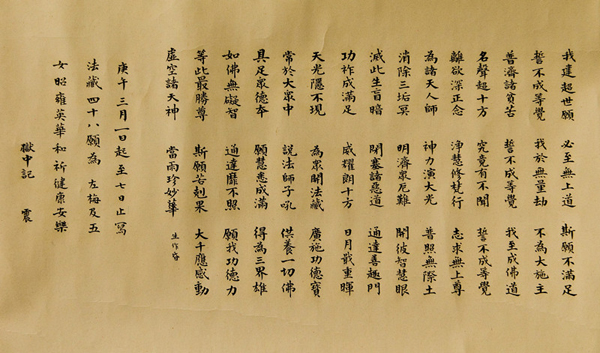 我建超世願 必至無上道 斯願不滿足
誓不成等覺 我於無量劫 不為大施主
普濟諸貧苦 誓不成等覺 我至成佛道
名聲超十方 究竟有不聞 誓不成等覺
離欲深正念 淨慧修梵行 志求無上尊
為諸天人師 神力演大光 普照無際土
消除三垢冥 明濟衆厄難 開彼智慧眼
滅此生盲暗 閉塞諸惡道 通達善趣門
功祚成滿足 威耀朗十方 日月戢重暉
天光隱不現 為衆開法藏 廣施功德寶
常於大衆中 說法師子吼 供養一切佛
具足衆德本 願慧悉成滿 得為三界雄
如佛無礙智 通達靡不照 願我功德力
等此最勝尊 斯願若剋果 大千應感動
虛空諸天神 當雨珍妙華
庚午三月一日起至七日止寫
法藏四十八願為左梅及五
女昭雍英華和祈健康安樂
獄中記 震